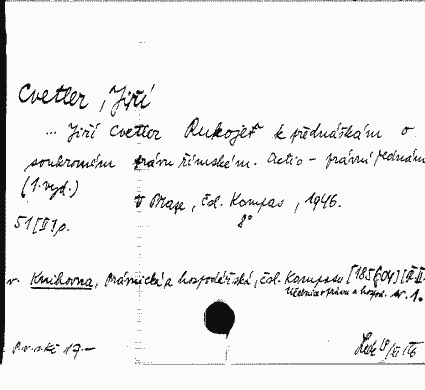 Cvetler, Jiří
... Jiří Cvetler Rukojeť k přednáškám o
soukromém právu římském. Actio - právní jednání
(1. vyd.)
V Praze, čsl. Kompas, 1946.
8°
51 [II] p.
v. Knihovna, Právnická a hospodářská, čsl. Kompasu [185604]
Učebnice práva a hospod. sv. 1.
17.-